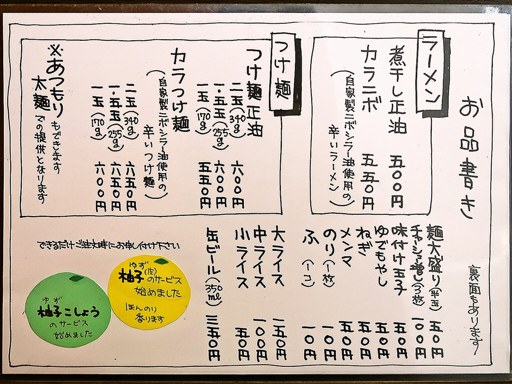 お品書き
裏面もあります
ラーメン
煮干し正油 五〇〇円
カラニボ 五五〇円
(自家製ニボシラー油使用の辛いラーメン)
つけ麺
つけ麺正油
二玉(340g) 六〇〇円
一.五玉(255g) 六〇〇円
一玉(170g) 五五〇円
カラつけ麺
(自家製ニボシラー油使用の辛いつけ麺)
二玉(340g) 六五〇円
一.五玉(255g) 六五〇円
一玉(170g) 六〇〇円
※あつもりもできます
太麺での提供となります
麺大盛り(半玉) 五〇円
チャーシュー増し(三枚) 一〇〇円
味付け玉子 五〇円
ゆでもやし 五〇円
ねぎ 五〇円
メンマ 五〇円
のり(一枚) 一〇円
ふ(一コ) 一〇円
大ライス 一五〇円
中ライス 一〇〇円
小ライス 五〇円
缶ビール(350ml) 三五〇円
できるだけご注文時にお申し付け下さい
ゆず
柚子(皮)のサービス
始めました
ほんのり
香ります
ゆず
柚子こしょう
のサービス
始めました